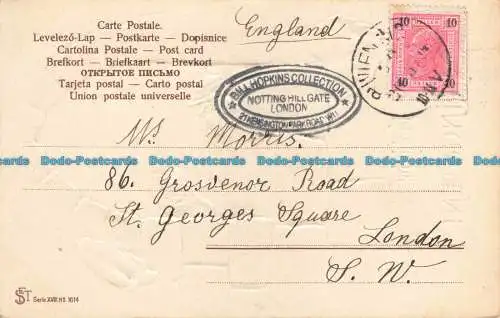 Carte Postale.
Levelező-Lap — Postkarte — Dopisnice
Cartolina Postale — Post card
Brefkort — Briefkaart — Brevkort
ОТКРЫТОЕ ПИСЬМО
Tarjeta postal — Carto postal
Union postale universelle
England
10 10
10 10
WIEN
BILL HOPKINS COLLECTION
NOTTING HILL GATE
LONDON
21 KENSINGTON PARK ROAD W11
Ms Morris.
Dodo-Postcards Dodo-Postcards Dodo-Postcards Dodo-Postcards Dodo-Postcards
86. Grosvenor Road
St. Georges Square
London
S. W.
Serie XVIII. No. 1614